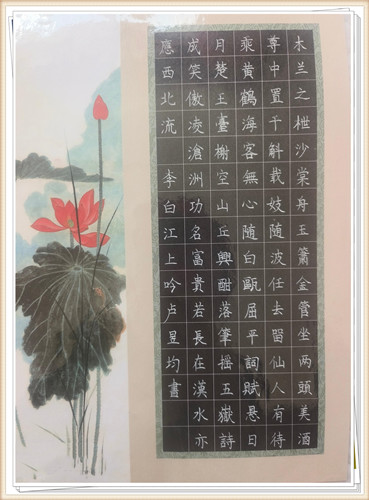 木兰之枻沙棠舟玉簫金管坐两頭美酒
尊中置千斛载妓随波任去留仙人有待
乘黄鶴海客無心随白鷗屈平詞賦悬日
月楚王臺榭空山丘興酣落筆摇五嶽詩
成笑傲凌滄洲功名富貴若長在漢水亦
應西北流 李白江上吟卢昱均書